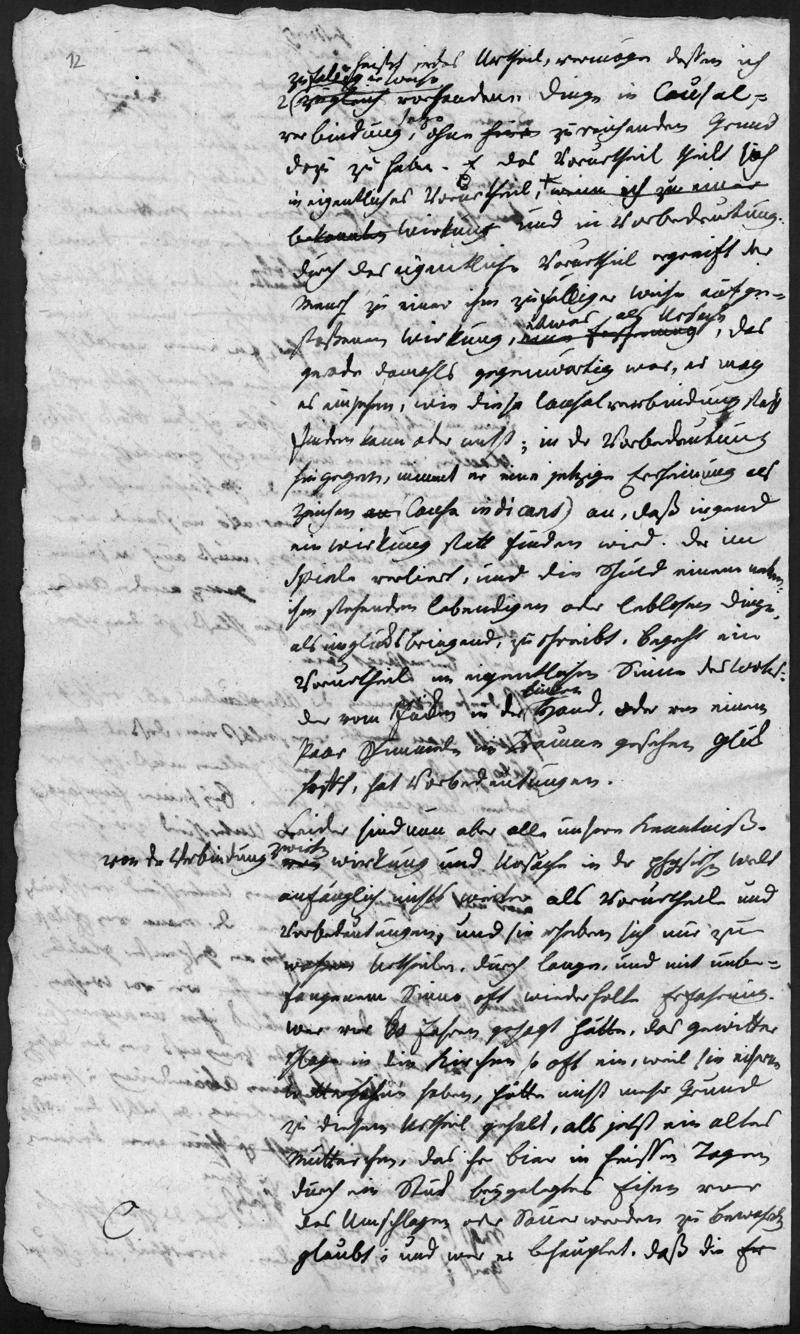 12
heißt jedes Urtheil, vermöge dessen ich
zufälliger Weise
2 (zugleich vorhandene Dinge in Causal-
verbindung setze, ohne hinzureichenden Grund
dazu zu haben. Das Vorurtheil theilt sich
in eigentliches Vorurtheil, wenn ich zu einer
bekannten Wirkung und in Vorbedeutung.
Durch das eigentliche Vorurtheil ergreift der
Mensch zu einer ihm zufälliger Weise aufge-
stoßenen Wirkung, etwas als Ursache, das
gerade damahls gegenwärtig war, er mag
es einsehen, wie diese Causalverbindung statt
finden kann oder nicht; in der Vorbedeutung
hingegen, nimmt er eine jetzige Erscheinung als
Zeichen (Causa indicans) an, daß irgend
ein Wirkung statt finden wird. Der im
Spiele verliert, und die Schuld einem neben
ihm stehenden lebendigen oder leblosen Dinge,
als unglücksbringend, zuschreibt, begeht ein
Vorurtheil im eigentlichen Sinne des Worts.
Der vom Jücken in der linken Hand, oder von einem
Paar Schimmeln im Traume gesehen Glück
hofft, hat Vorbedeutungen.
Leider sind nun aber alle unsere Kenntniß
von der Verbindung zwischen Wirkung und Ursache in der physischen Welt
anfänglich nichts weiter als Vorurtheile und
Vorbedeutungen, und sie erheben sich nur zu
wahren Urtheilen, durch lange, und mit unbe-
fangenem Sinne oft wiederholte Erfahrung.
Wer vor 60 Jahren gesagt hätte, das Gewitter
schlage in die Kirchen so oft ein, weil sie eiserne
Wetterhähne haben, hätte nicht mehr Grund
zu diesem Urtheil gehabt, als jetzt ein altes
Mütterchen, das ihr Bier in heissen Tagen
durch ein Stück beygelegtes Eisen vor
des Umschlagen oder Sauerwerden zu bewahren
glaubt; und wer es behauptet, daß die Er